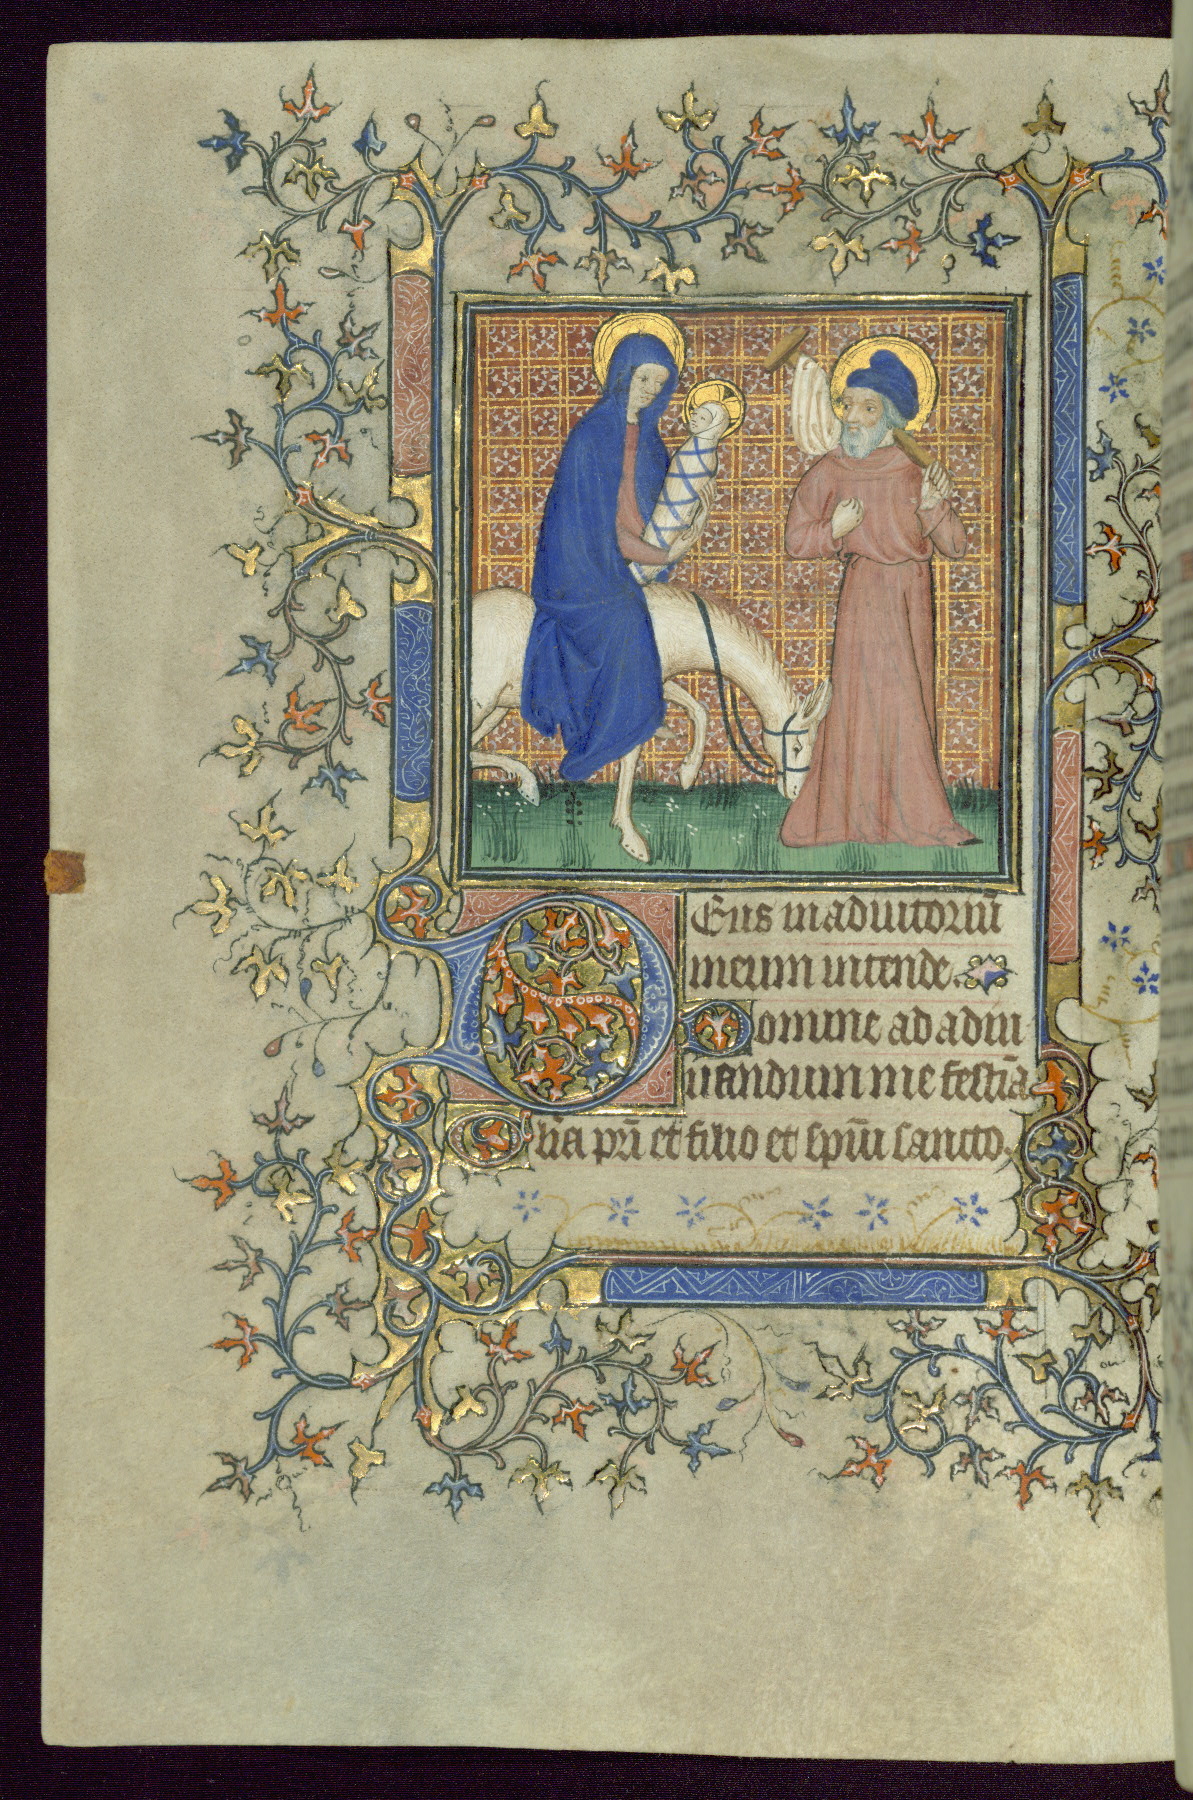 Deus in adiutoriū
meum intende.
Domine ad adiu
uandum me festiā
Glia pri̅ et filio et sp̅ui sancto.